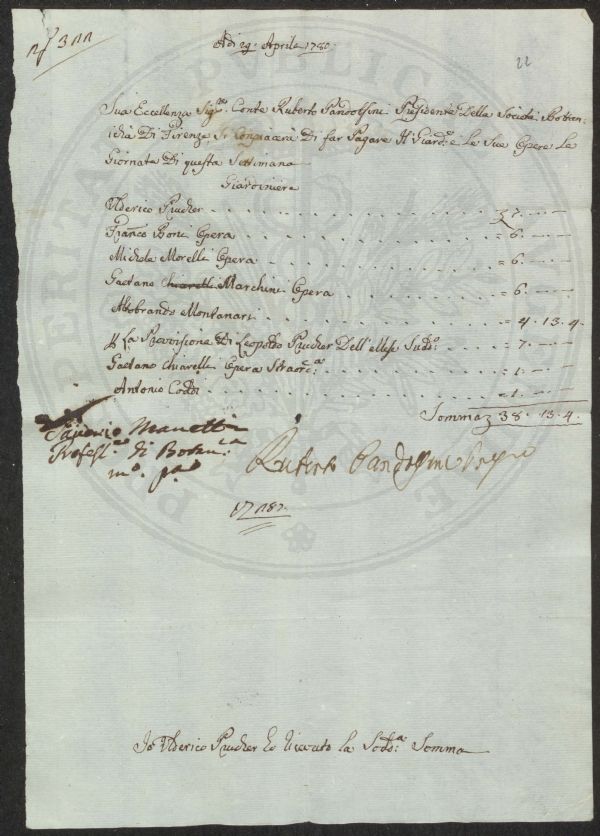 N 311
Adi 29. Aprile 1780.
22
Sua Eccellenza Sig.re Conte Ruberto Pandolfini Presidente Della Società Botan-
icha Di Firenze, Si Conpiacerà Di far Pagare Il Giard.e e Le Sue Opere Le
Giornate Di questa Settimana
Giardiniere
Ulderico Prucher . . . 7. — —
Franco Boni Opera . . . = 6. — —
Michele Morelli Opera . . . = 6. — —
Gaetano Chiarelli Marchini Opera . . . = 6. — —
Aldobrando Montanari . . . = 4. 13. 4.
P La Provisione Di Leopoldo Prucher Dell' Mese Sud.o . . . = 7. — —
Gaetano Chiarelli Opera Straord.a . . . = 1. — —
Antonio Coddi . . . = 1. — —
Somma 38. 13. 4.
Saverio Manetti
Profess.re di Botan.ca
m.o p.a
Ruberto Pandolfini
187.
Io Ulderico Prucher ho Riceuto la Sod.a Somma